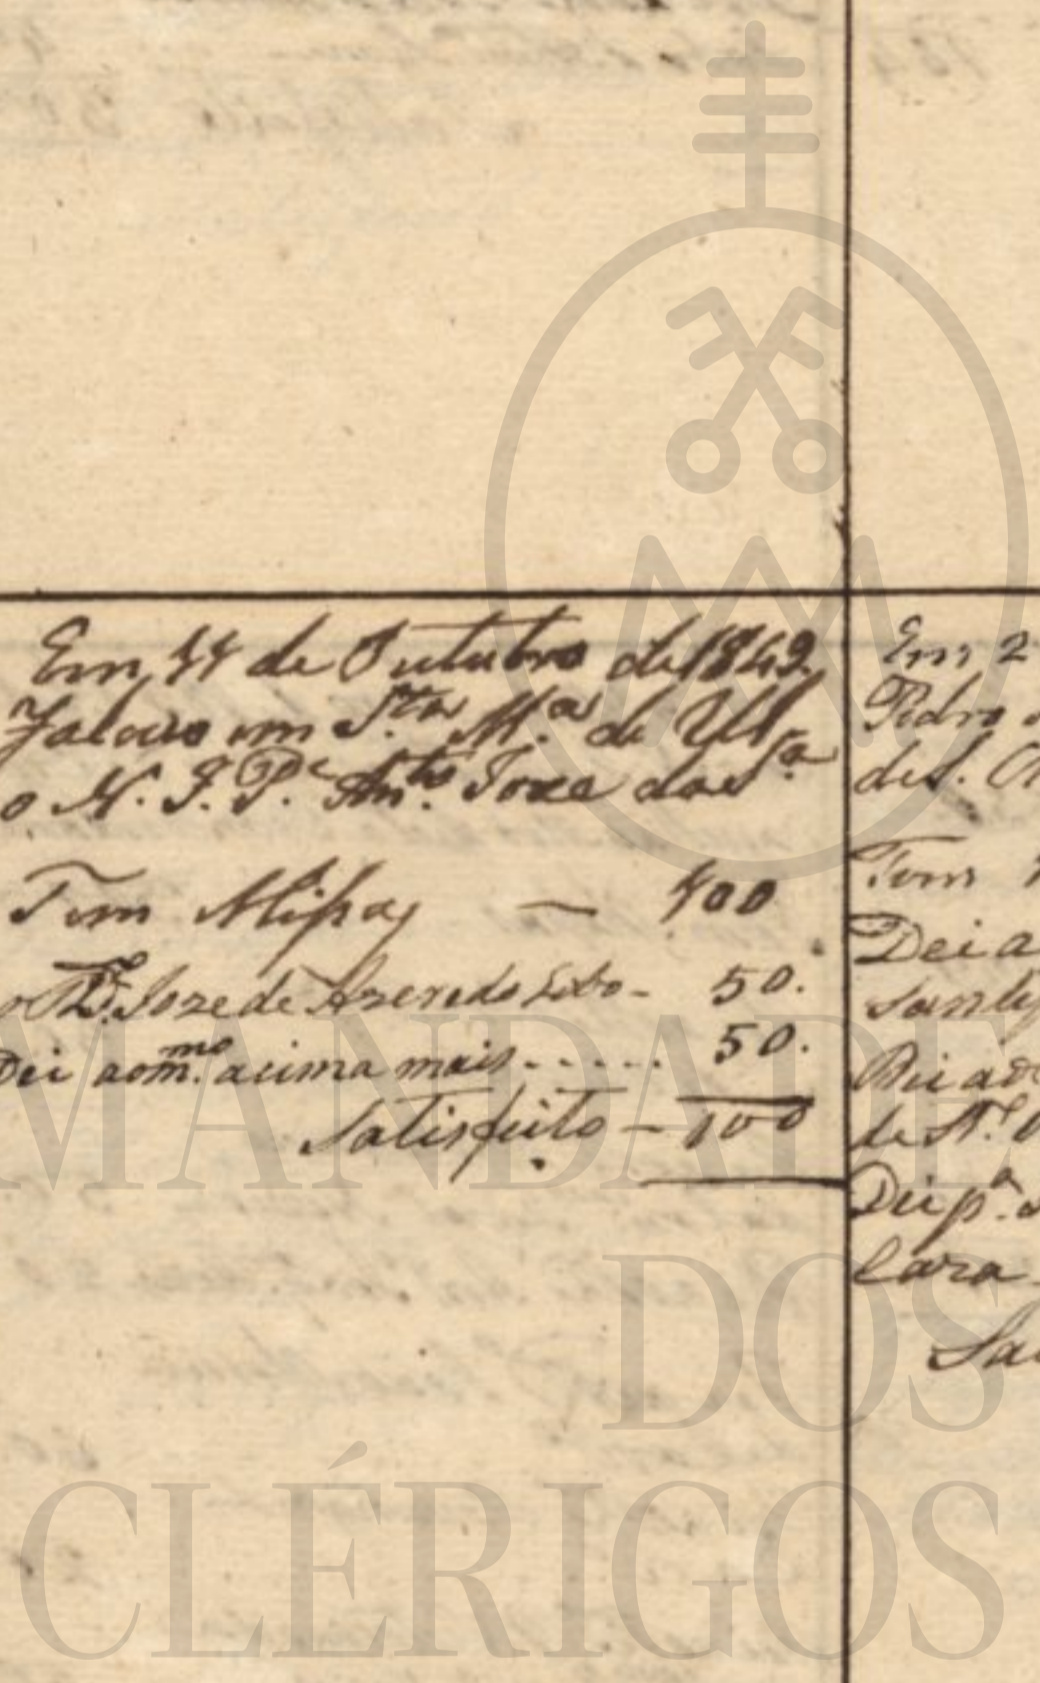 Em 11 de Outubro de 1842
Faleceo em S.ta M.a de
o N. I. P.e Ant.o Joze da S.a
Tem Missas — 100
Joze de Azeredo Lobo - 50.
Dei ao m.mo acima mais ..... 50.
Satisfeito - 100
Em 2
Pedro
de S.
Tem
Dei a
Santos
Dei ao
de N.
Dei p.a
Clara
Sa
MANDADE
DOS
CLÉRIGOS